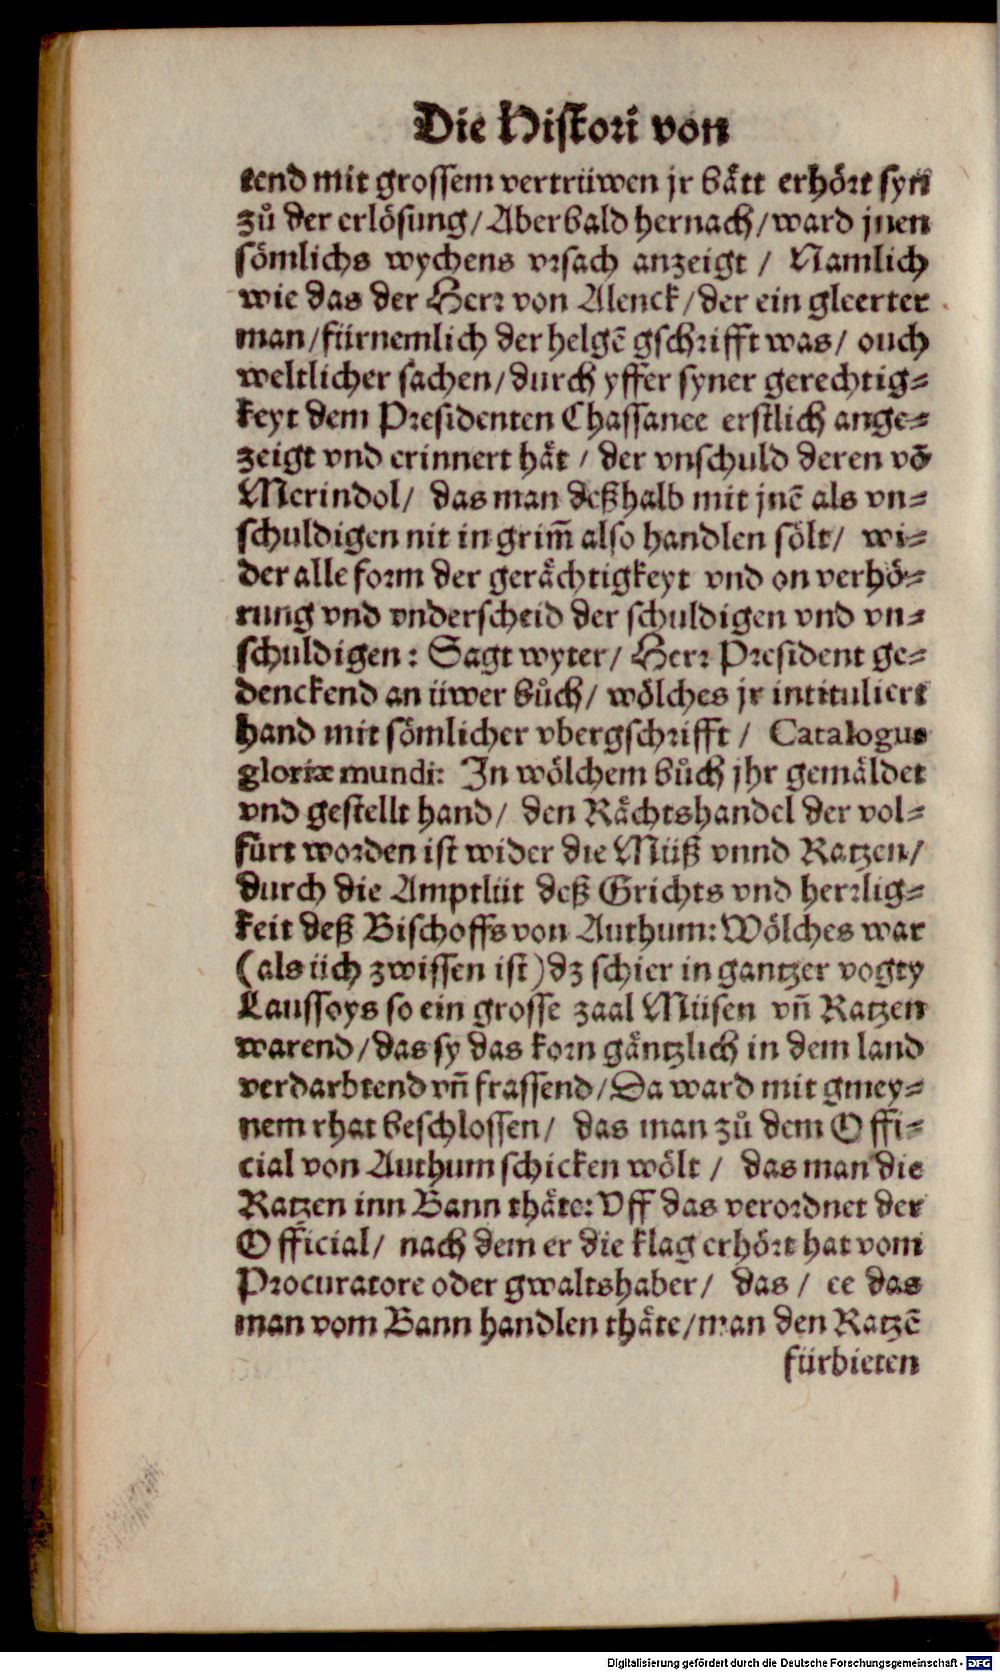 Die Histori von
tend mit grossem vertrüwen jr bätt erhört syn
zů der erlösung/ Aber bald hernach/ ward jnen
sömlichs wychens vrsach anzeigt / Namlich
wie das der Herr von Alenck/ der ein gleerter
man/ fürnemlich der helgē gschrifft was/ ouch
weltlicher sachen/ durch yffer syner gerechtig⸗
keyt dem Presidenten Chassanee erstlich ange⸗
zeigt vnd erinnert hät / der vnschuld deren vō
Merindol/ das man deßhalb mit jnē als vn⸗
schuldigen nit in grim̄ also handlen sölt/ wi⸗
der alle form der gerächtigkeyt vnd on verhö⸗
rung vnd vnderscheid der schuldigen vnd vn⸗
schuldigen: Sagt wyter/ Herr President ge⸗
denckend an üwer bůch/ wölches jr intituliert
hand mit sömlicher vbergschrifft / Catalogus
gloriæ mundi: In wölchem bůch jhr gemäldet
vnd gestellt hand/ den Rächtshandel der vol⸗
fürt worden ist wider die Müß vnnd Ratzen/
durch die Amptlüt deß Grichts vnd herrlig⸗
keit deß Bischoffs von Authum: Wölches war
(als üch zwissen ist) dz schier in gantzer vogty
Laussoys so ein grosse zaal Müsen vn̄ Ratzen
warend/ das sy das korn gäntzlich in dem land
verdarbtend vn̄ frassend/ Da ward mit gmey⸗
nem rhat beschlossen/ das man zů dem Offi⸗
cial von Authum schicken wölt / das man die
Ratzen inn Bann thäte: Vff das verordnet der
Official/ nach dem er die klag erhört hat vom
Procuratore oder gwaltshaber/ das / ee das
man vom Bann handlen thäte/ man den Ratzē
fürbieten
Digitalisierung gefördert durch die Deutsche Forschungsgemeinschaft - DFG